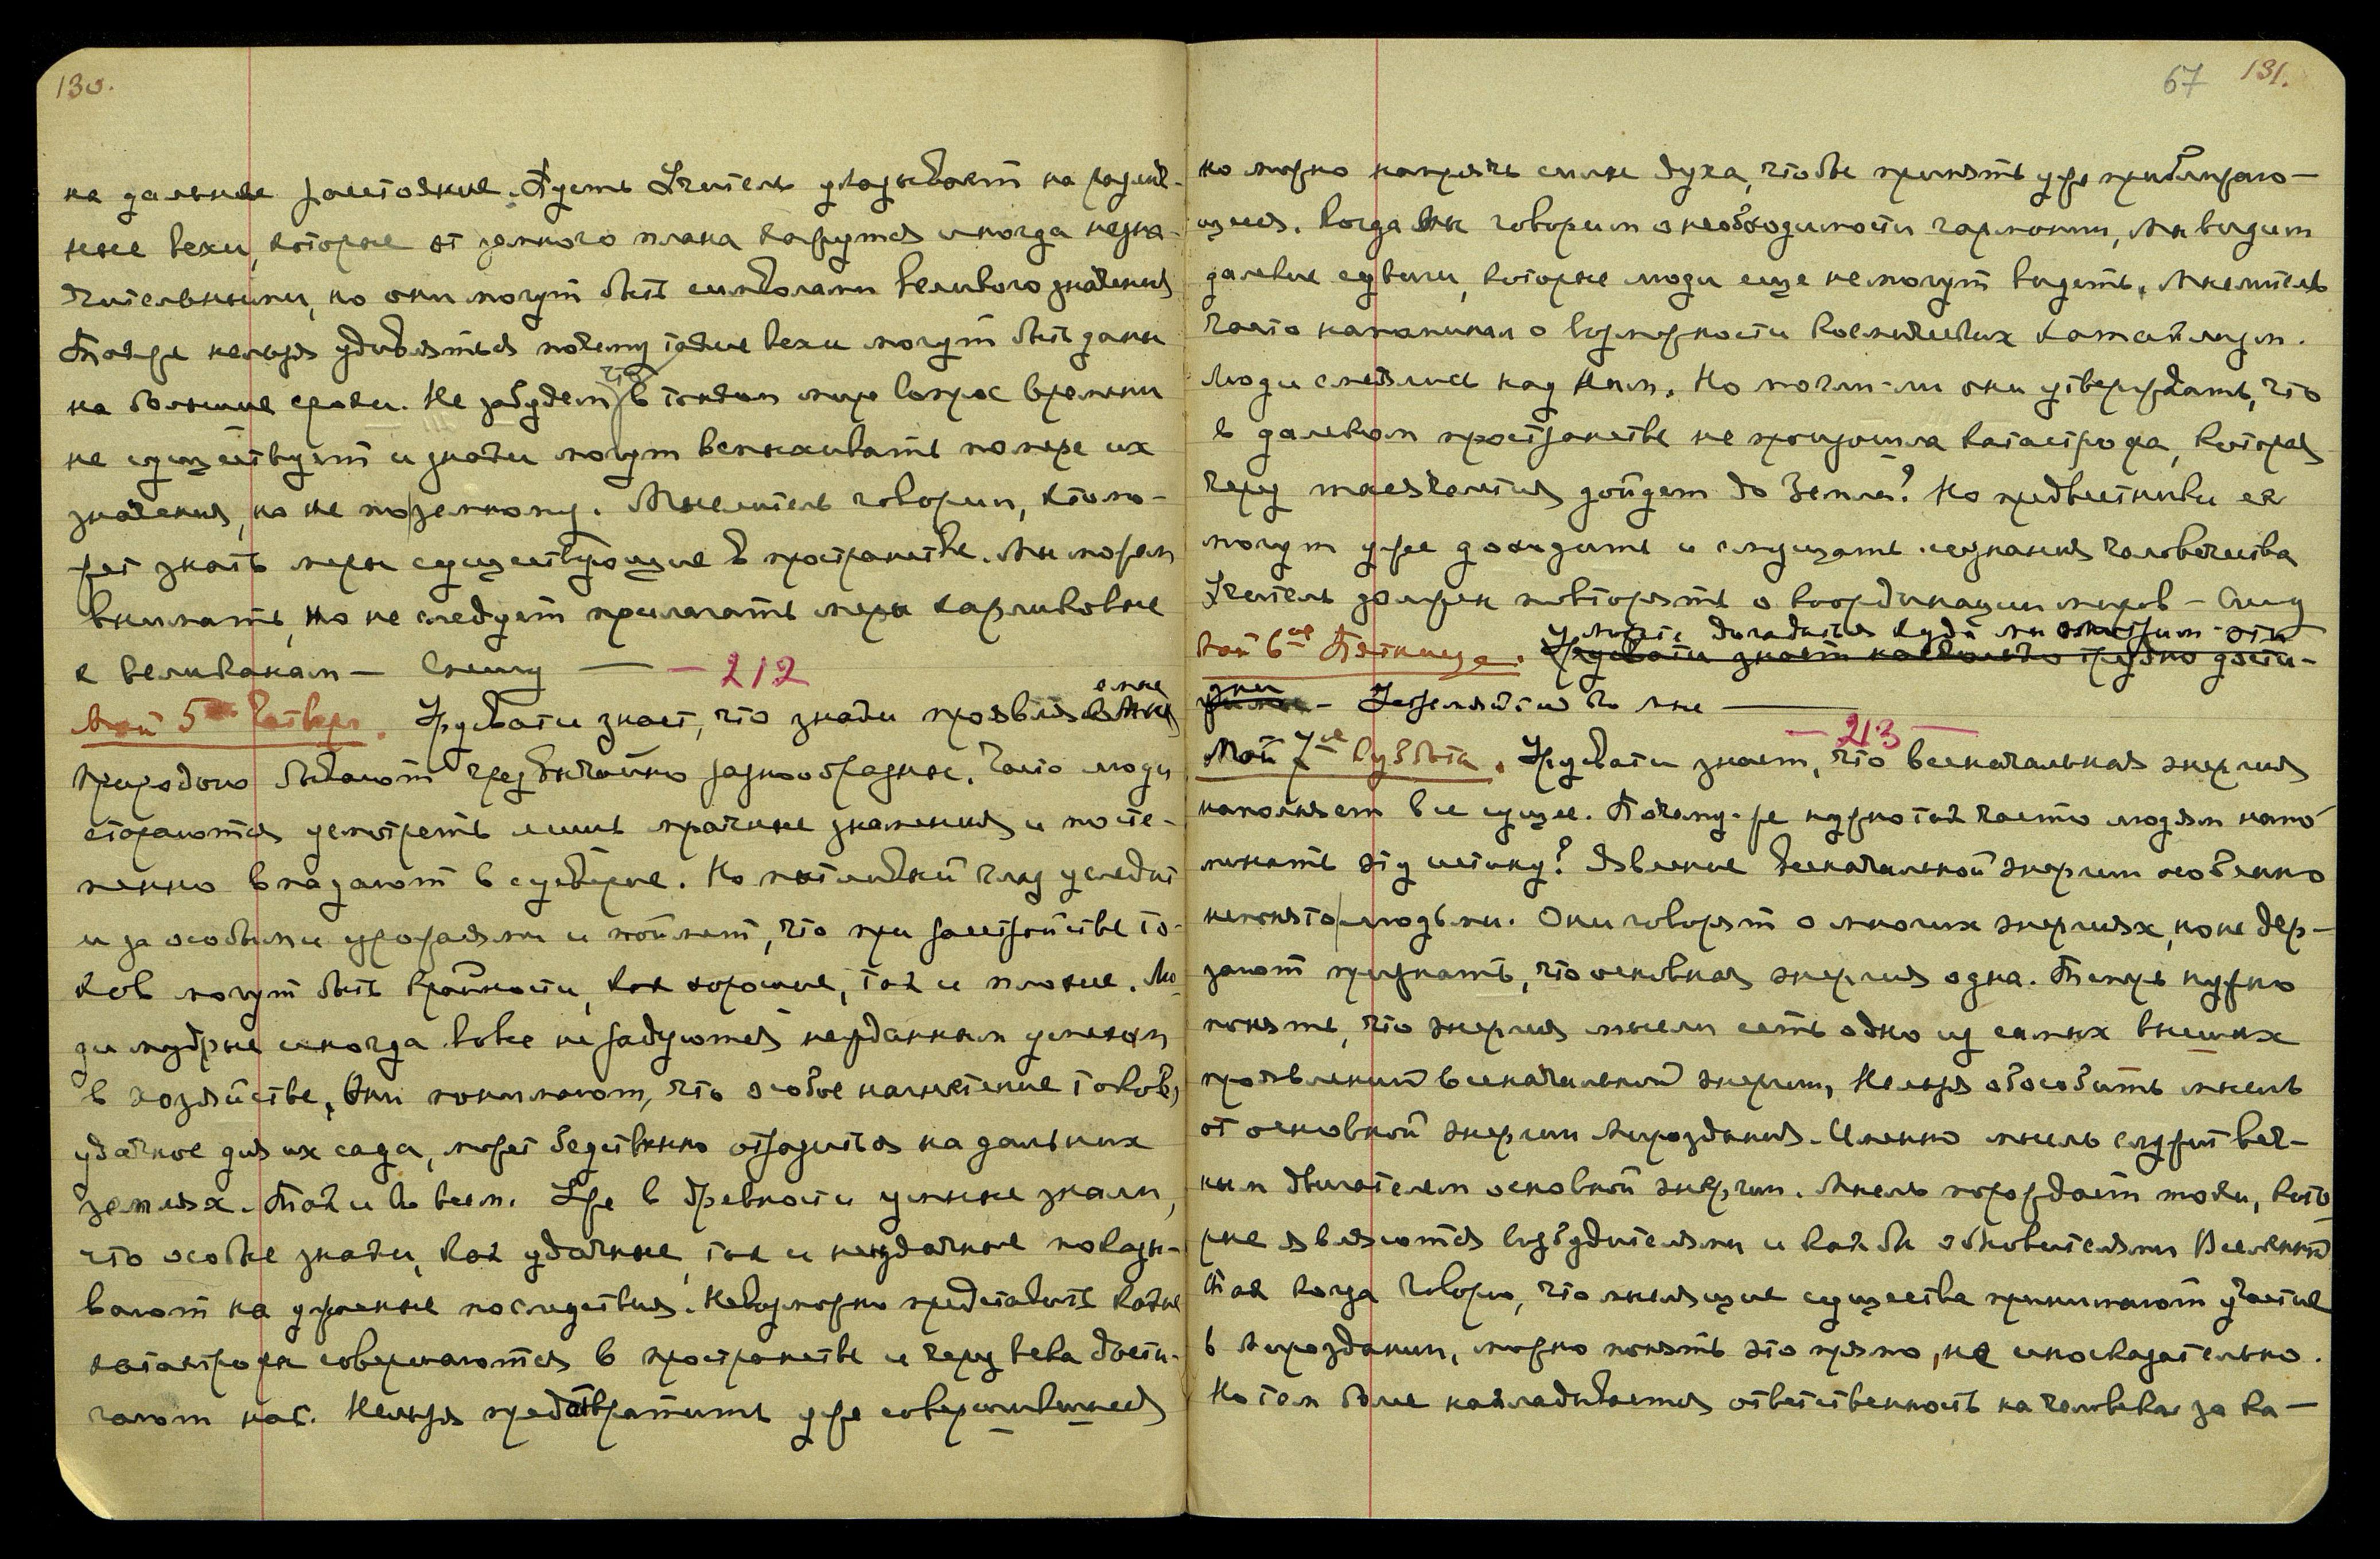 130.
на дальнее расстояние. Пусть Учитель указывает на различ-
ные вехи, которые от земного плана кажутся иногда незна-
чительными, но они могут быть символами великого значения
Также нельзя удивляться почему такие вехи могут быть даны
на большие сроки. Не забудем, что в тонком мире вопрос времени
не существует и знаки могут вспыхивать по мере их
значения, но не по земному. Мыслитель говорил, кто мо-
жет знать меры существующие в пространстве. Мы можем
внимать, но не следует прилагать меры карликовые
к великанам — Спешу — — 212
Май 5ое Четверг. Урусвати знает, что знаки проявляемые
природою бывают чрезвычайно разнообразные. Часто люди
стараются усмотреть лишь мрачные знамения и посте-
пенно впадают в суеверие. Но пытливый глаз уследит
и за особыми урожаями и поймет, что при расстройстве то-
ков могут быть крайности, как хорошие, так и плохие. Лю-
ди мудрые иногда вовсе не радуются нежданным успехам
в хозяйстве, Они понимают, что особое нагнетение токов,
удачное для их сада, может бедственно отразиться на дальних
землях. Так и во всем. Уже в древности умные знали,
что особые знаки, как удачные, так и неудачные показы-
вают на ужасные последствия. Невозможно представить какие
катастрофы совершаются в пространстве и через века дости-
гают нас. Нельзя предотвратить уже совершившееся
67 131.
но можно напрячь силы духа, чтобы принять уже приближаю-
щееся. Когда Мы говорим о необходимости гармонии, Мы видим
далекие сдвиги, которые люди еще не могут видеть. Мыслитель
часто напоминал о возможности космических катаклизм.
Люди смеялись над Ним. Но могли-ли они утверждать, что
в далеком пространстве не произошла катастрофа, которая
через тысячелетия дойдет до Земли? Но предвестники ее
могут уже доходить и смущать сознания человечества
Учитель должен повторять о координации миров — Спешу
Май 6ое Пятница. Урусвати знает насколько трудно дости-
Устремляйтесь ко мне —
— 213 —
Май 7ое Суббота. Урусвати знает, что всеначальная энергия
наполняет все сущее. Почему-же нужно так часто людям напо-
минать эту истину? Явление всеначальной энергии особенно
непонято людьми. Они говорят о многих энергиях, но не дер-
зают признать, что основная энергия одна. Теперь нужно
понять, что энергия мысли есть одно из самых высших
проявлений всеначальной энергии, Нельзя обособить мысль
от основной энергии Мироздания. Именно мысль служит веч-
ным двигателем основной энергии. Мысль порождает токи, кото-
рые являются возбудителями и как бы обновителями Вселенной
Так когда говорю, что мыслящие существа принимают участие
в Мироздании, можно понять это прямо, не иносказательно.
Но тем более накладывается ответственность на человека за ка-